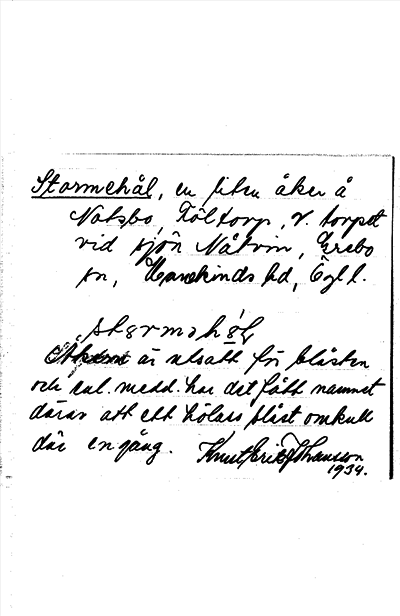 Stormehål, en liten åker å
Natsbo,Föltorp, v. torpet
vid sjön Nåtvin, Grebo
sn, Hanekinds hd, Ögl.
Åkern är utsatt för blåsten
och enl. medd. har det fått namnet
därav att ett hölass blåst omkull
där en gång. Knut Erik Johansson
1934.